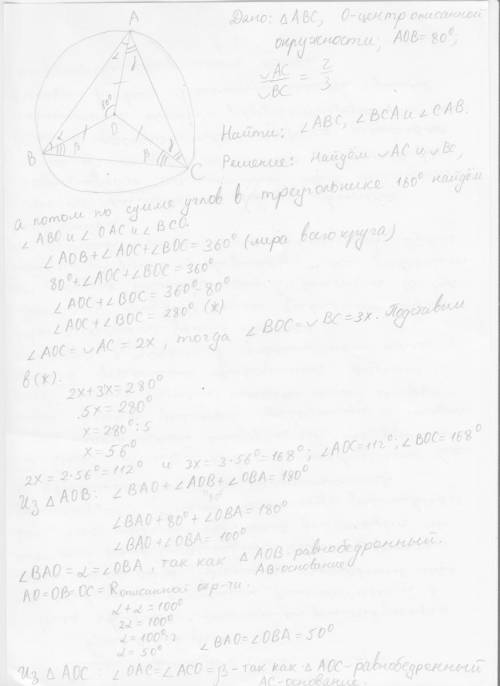 Дано: △ABC, O-центр описанной
окружности; AOB = 80°;
◡AC / ◡BC = 2/3
Найти: ∠ABC, ∠BCA и ∠CAB.
Решение: Найдём ◡AC и ◡BC,
а потом по сумме углов в треугольнике 180° найдём
∠ABO и ∠OAC и ∠BCO.
∠AOB + ∠AOC + ∠BOC = 360° (мира всего круга)
80° + ∠AOC + ∠BOC = 360°
∠AOC + ∠BOC = 360° - 80°
∠AOC + ∠BOC = 280° (*)
∠AOC = ◡AC = 2x, тогда ∠BOC = ◡BC = 3x. Подставим
в (*).
2x + 3x = 280°
5x = 280°
x = 280° : 5
x = 56°
2x = 2·56° = 112° и 3x = 3·56° = 168°; ∠AOC = 112°, ∠BOC = 168°
Из △AOB: ∠BAO + ∠AOB + ∠OBA = 180°
∠BAO + 80° + ∠OBA = 180°
∠BAO + ∠OBA = 100°
∠BAO = α = ∠OBA, так как △AOB-равнобедренный.
AB-основание
AO = OB = OC = R описанной окр-ти.
α + α = 100°
2α = 100°
α = 100° : 2
α = 50° ∠BAO = ∠OBA = 50°
Из △AOC: ∠OAC = ∠ACO = β - так как △AOC-равнобедренный
AC-основание.
A
α
γ
80°
O
B
α
β
β
γ
C